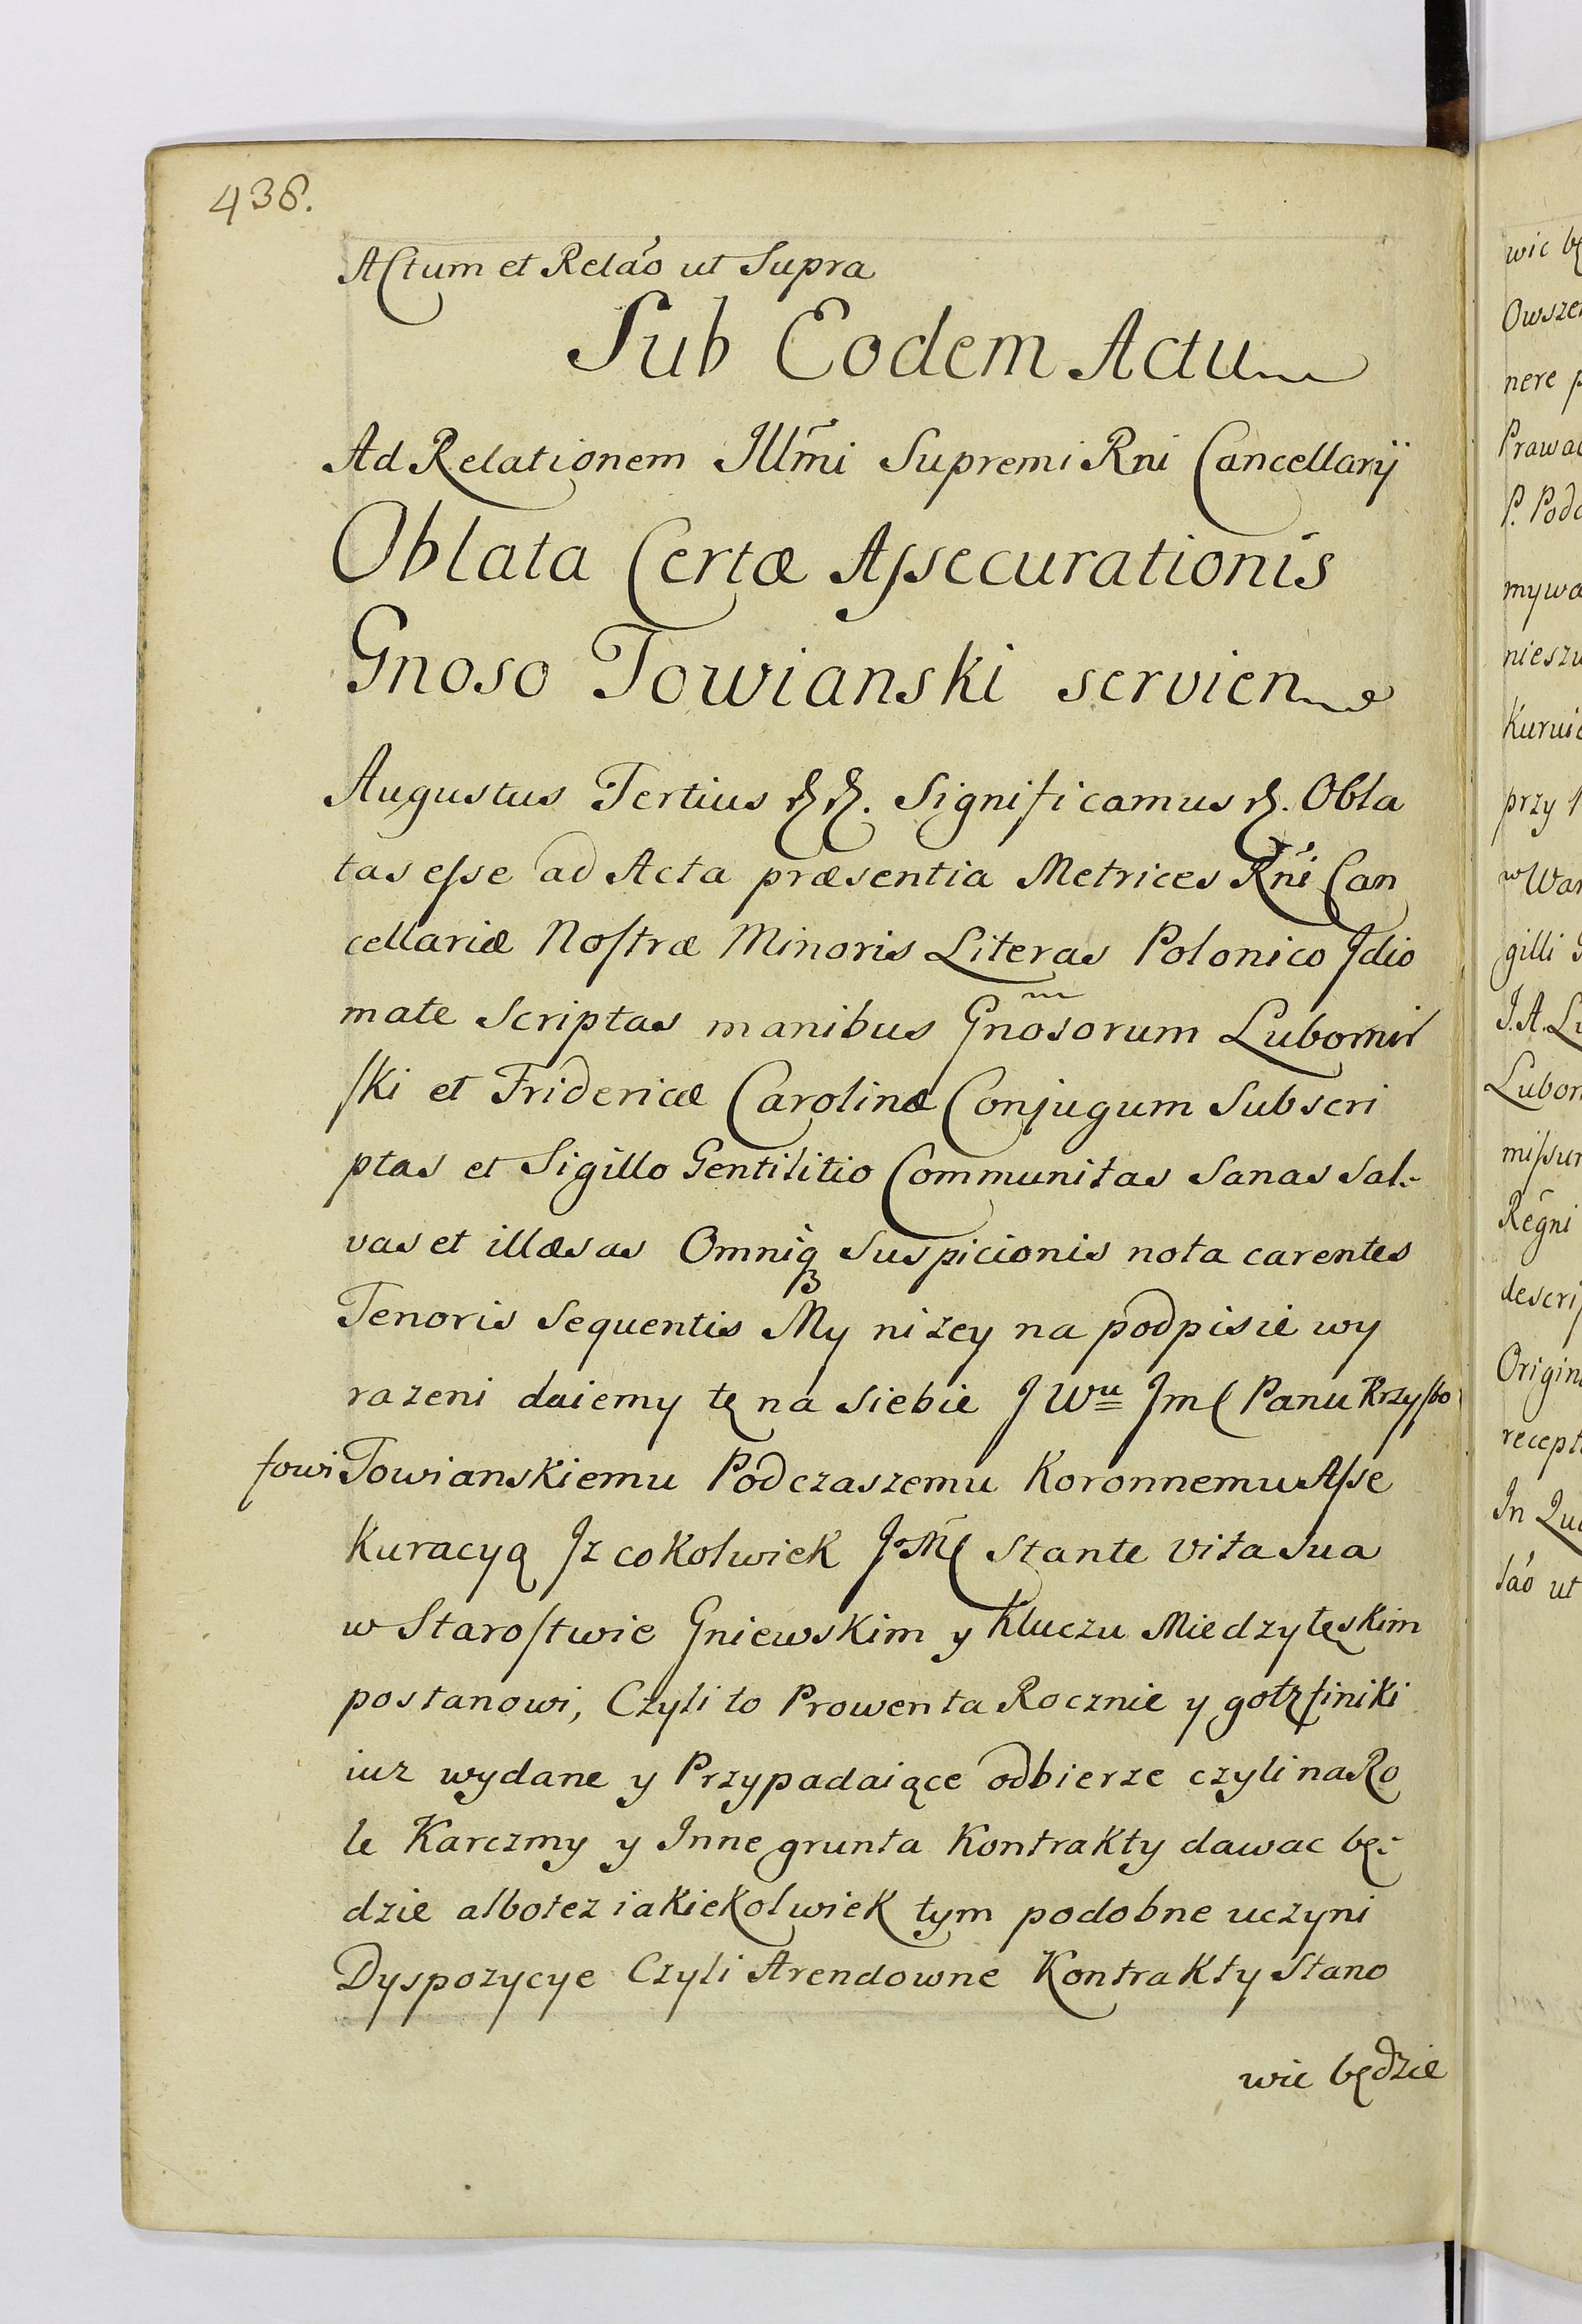 438.
Actum et Relao ut Supra
Sub Eodem Actu
Ad Relationem Illmi Supremi Rni Cancellarij
Oblata Certæ Assecurationis
Gnoso Towianski servien
Augustus Tertius &&. Significamus &. Obla
tas esse ad Acta præsentia Metrices Rni Can
cellariæ Nostræ Minoris Literas Polonico Idio
mate Scriptas manibus Gnosorum Lubomir
ski et Fridericæ Carolinæ Conjugum Subscri
ptas et Sigillo Gentilitio Communitas Sanas Sal-
vas et illæsas Omniq3 Suspicionis nota carentes
Tenoris Sequentis My nizey na podpisie wy
razeni daiemy tę na Siebie J Wu Jmć Panu Krzyszto
fowi Towianskiemu Podczaszemu Koronnemu Asse
Kuracyą Jz cokolwiek JMć Stante vita Sua
w Starostwie Gniewskim y Kluczu Miedzyłęskim
postanowi, Czyli to Prowenta Rocznie y
iuz wydane y Przypadaiące odbierze czyli na Ro
le Karczmy y Inne grunta Kontrakty dawac bę-
dzie albotez iakiekolwiek tym podobne uczyni
Dyspozycye Czyli Arendowne Kontrakty Stano
wic będzie
wic bę
Owsze
nere p
Prawa
P. Podc
mywa
nieszu
przy
w War
gilli G
J. A. Lu
Lubom
missur
Regni
descrip
Origina
recept
In Quo
lao ut